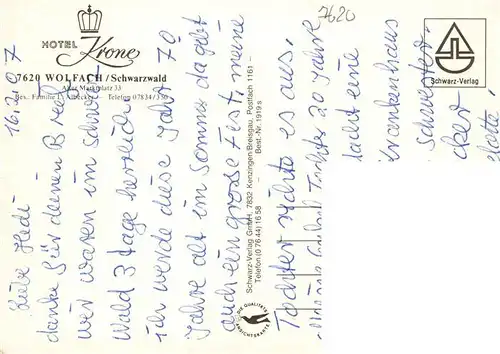 HOTEL Krone
7620 WOLFACH / Schwarzwald
Alter Marktplatz 33
Bes. Familie Telefon 07834/
7620
Schwarz-Verlag
Schwarz-Verlag GmbH, 7832 Kenzingen/Breisgau, Postfach 1161 –
Telefon (0 76 44) 16 58 – Best.-Nr. 1919 s
DIE QUALITÄTS
ANSICHTSKARTE
Liebe Hedi
danke für deinen Brief
wir waren im Schwarz
wald 3 tage herrlich
ich werde diese Jahr 70
Jahre alt im Sommer da gibt
auch ein grosse Fest, meine
Tochter richte es aus,
Tochter 20 Jahre
eine
Krankenhaus
Schwester.
der